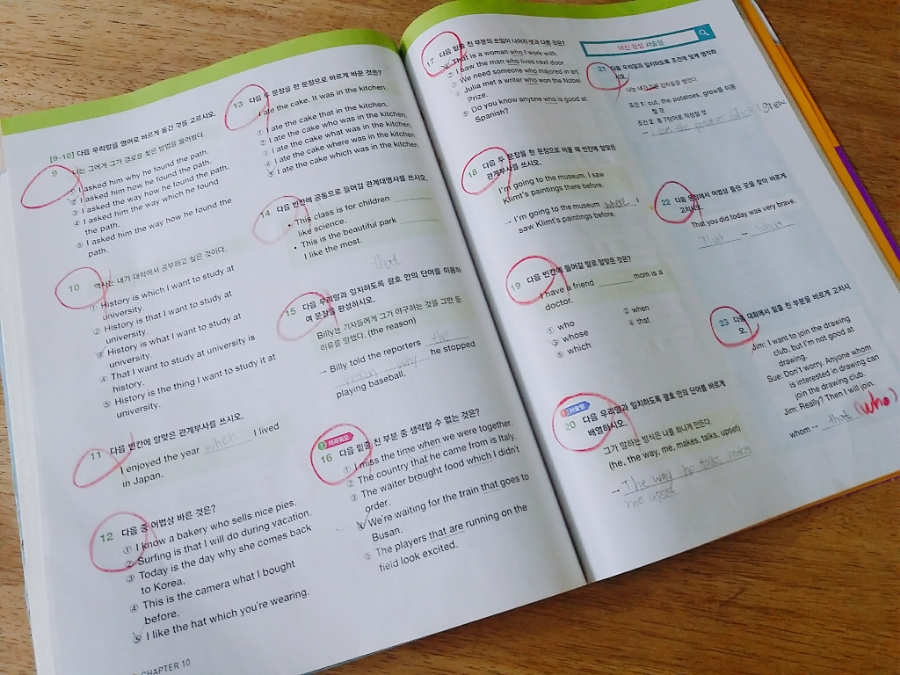 [9-10] 다음 우리말을 영어로 바르게 옮긴 것을 고르시오.
9 나는 그에게 그가 경로를 찾은 방법을 물어봤다.
① I asked him why he found the path.
② I asked him how he found the path.
③ I asked the way how he found the path.
④ I asked him the way which he found
the path.
⑤ I asked him the way how he found the
path.
10 역사는 내가 대학에서 공부하고 싶은 것이다.
① History is which I want to study at
university.
② History is that I want to study at
university.
③ History is what I want to study at
university.
④ That I want to study at university is
history.
⑤ History is the thing I want to study it at
university.
11 다음 빈칸에 알맞은 관계부사를 쓰시오.
I enjoyed the year when I lived
in Japan.
12 다음 중 어법상 바른 것은?
① I know a bakery who sells nice pies.
② Surfing is that I will do during vacation.
③ Today is the day why she comes back
to Korea.
④ This is the camera what I bought
before.
⑤ I like the hat which you're wearing.
CHAPTER 10
13 다음 두 문장을 한 문장으로 바르게 바꾼 것은?
I ate the cake. It was in the kitchen.
① I ate the cake that in the kitchen.
② I ate the cake who was in the kitchen.
③ I ate the cake what was in the kitchen.
④ I ate the cake where was in the kitchen.
⑤ I ate the cake which was in the kitchen.
14 다음 빈칸에 공통으로 들어갈 관계대명사를 쓰시오.
• This class is for children
like science.
• This is the beautiful park
I like the most.
that
15 다음 우리말과 일치하도록 괄호 안의 단어를 이용하
여 문장을 완성하시오.
Billy는 기자들에게 그가 야구하는 것을 그만 둔
이유를 말했다. (the reason)
→ Billy told the reporters the
reason why he stopped
playing baseball.
16 다음 밑줄 친 부분 중 생략할 수 없는 것은?
① I miss the time when we were together.
② The country that he came from is Italy.
③ The waiter brought food which I didn't
order.
④ We're waiting for the train that goes to
Busan.
⑤ The players that are running on the
field look excited.
17 다음 밑줄 친 부분의 쓰임이 나머지 넷과 다른 것은?
① That is a woman who I work with.
② I saw the man who lives next door.
③ We need someone who majored in art.
④ Julia met a writer who won the Nobel
Prize.
⑤ Do you know anyone who is good at
Spanish?
18 다음 두 문장을 한 문장으로 바꿀 때 빈칸에 알맞은
관계부사를 쓰시오.
I'm going to the museum. I saw
Klimt's paintings there before.
→ I'm going to the museum where I
saw Klimt's paintings before.
19 다음 빈칸에 들어갈 말로 알맞은 것은?
I have a friend mom is a
doctor.
① who
② when
③ whose
④ that
⑤ which
서술형
20 다음 우리말과 일치하도록 괄호 안의 단어를 바르게
배열하시오.
그가 말하는 방식은 나를 화나게 만든다.
(he, the way, me, makes, talks, upset)
→ The way he talks makes
me upset
내신 만점 서술형
21 다음 우리말과 일치하도록 조건에 맞게 영작하
시오.
나는 내가 기른 감자들을 썰었다.
조건 1: cut, the potatoes, grow를 이용
할 것
조건 2: 총 7단어로 작성할 것
→ I cut the potatoes that I grew
22 다음 문장에서 어법상 틀린 곳을 찾아 바르게
고치시오.
That you did today was very brave.
That → What
23 다음 대화에서 밑줄 친 부분을 바르게 고치시
오.
Jim: I want to join the drawing
club, but I'm not good at
drawing.
Sue: Don't worry. Anyone whom
is interested in drawing can
join the drawing club.
Jim: Really? Then I will join.
whom → that (who)